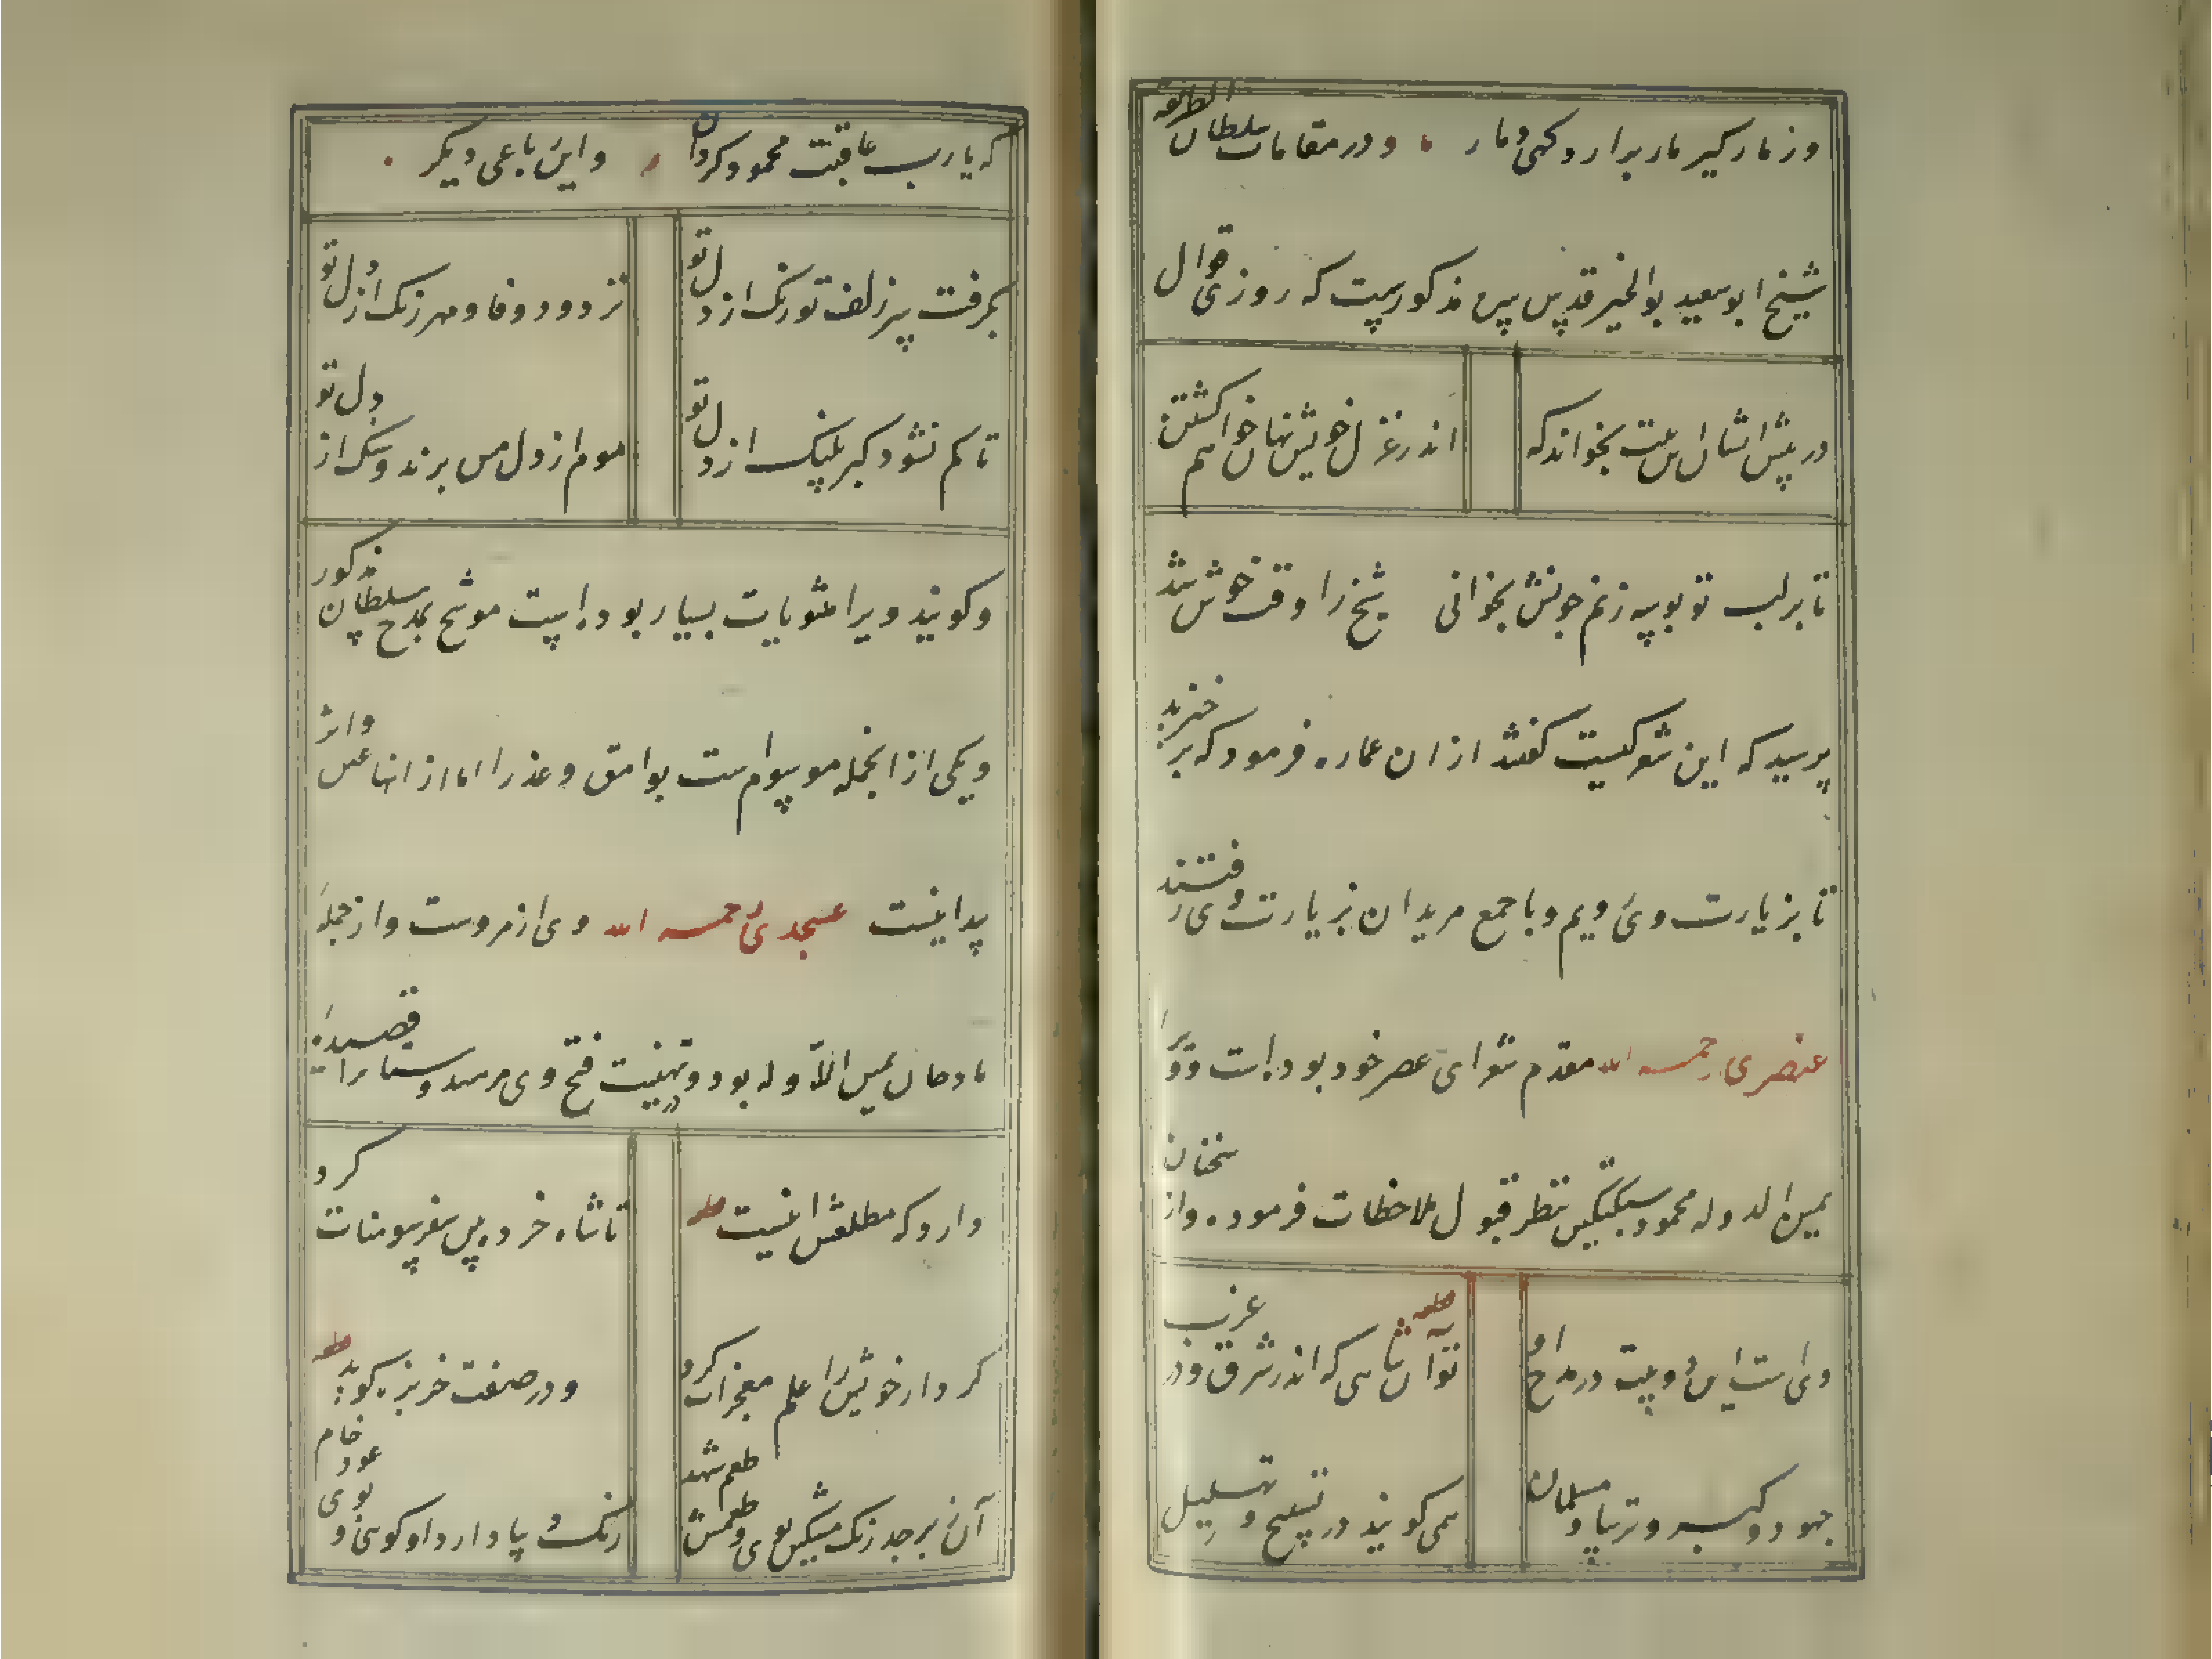 وز مار کیر مار برارد کهی و مار ۰ و در مقامات سلطان الطریقه
شیخ ابو سعید بو الخیر قدس سره مذکورست که روزی قوال
در پیش اشان این بیت بخواند که اندر غزل خویش نهان خواهم کشتن
تا بر لب تو بوسه زنم چونش بخوانی شیخ را وقت خوش شد
پرسید که این شعر کیست کفتند ازان عماره فرمود که برخیزید
تا بزیارت وی رویم و با جمع مریدان بزیارت وی رفتند
عنصری رحمه الله مقدم شعرای عصر خود بوده است و ویرا
یمین الدوله محمود سبکتکین بنظر قبول ملاحظات فرموده و از سخنان
وی است این دو بیت در مدح او تو آن شاهی که اندر شرق و در غرب
جهود و کبر و ترسا و مسلمان همی کویند در تسبیح و تهلیل
که یا رب عاقبت محمود کردان و این رباعی دیکر ۰
بکرفت سر زلف تو رنک از دل تو نزدود وفا و مهر زنک از دل تو
تا کم نشود کبر پلنک از دل تو موم از دل من برند و سنک از دل تو
و کویند ویرا مثنویات بسیار بوده است موشح بمدح سلطان مذکور
و یکی از انجمله موسوم ست بوامق و عذرا اما از انها عین و اثر
پیدا نیست عسجدی رحمه الله وی از مرو ست و از جمله
مادحان یمین الدوله بود و در تهنیت فتح وی مر سومنات را قصیده
دارد که مطلعش اینست تا شاه خرده بین سفر سومنات کرد
کردار خویش را علم معجزات کرد و در صفت خربزه کوید
آن زبرجد رنک مشکین بوی و طعمش طعم شهد رنک دیبا دارد او کوئی و بوی عود خام